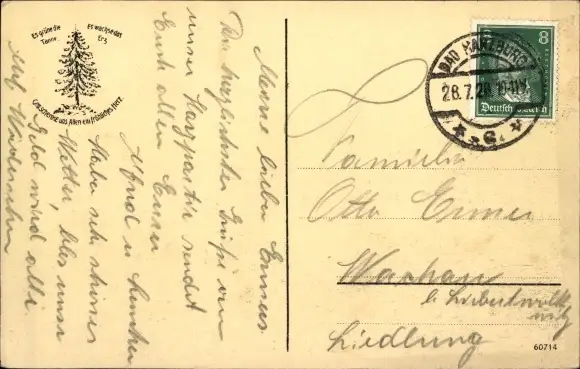 Es grüne die Tanne
Es wachse das Erz
Gott schenke uns Allen ein fröhliches Herz.
Meine lieben Emmers
Die herzlichsten Grüße von
unser Harzpartie sendet
Euch allen Euer
Alfred u
Habe sehr schönes
Wetter, blos unser
Geld wird alle.
Auf Wiedersehen
BAD HARZBURG
26.7.2
10-11V
8
8
Deutsches Reich
Familie
Otto Emmer
Wachau
b. Liebertwolk
witz
Siedlung
60714